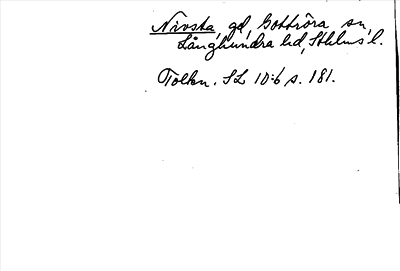 Nivsta, gd, Gottröra sn,
Långhundra hd, Sthlms l.
Tolken. SL 10:6 s. 181.